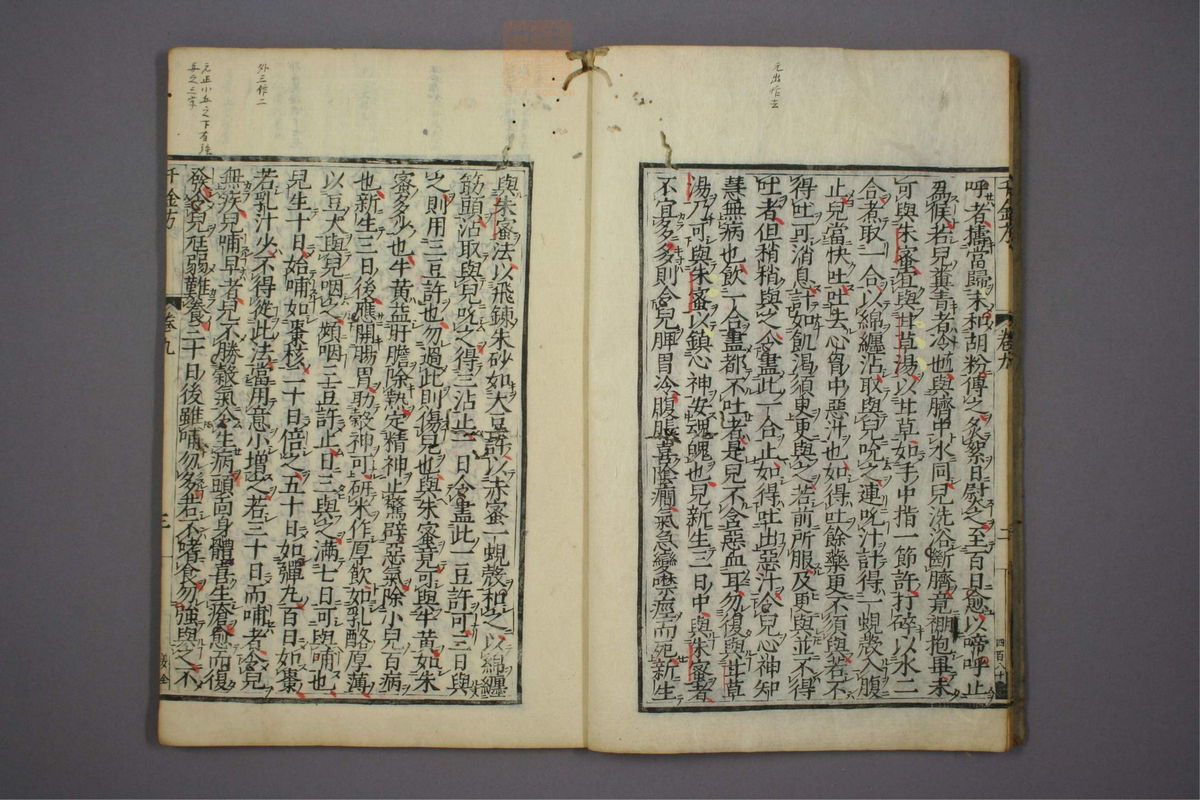 元出作去
呼者擣當歸末和胡粉傅之炙絮日熨之至百日愈以啼呼止
爲候若兒糞青者冷也與臍中水同兒洗浴斷臍竟襁抱畢未
可與朱蜜宜與甘草湯以甘草如手中指一節許打碎以水二
合煮取一合以綿纏沾取與兒吮之連吮汁計得一蜆殼入腹
止兒當快吐吐去心胷中惡汁也如得吐餘藥更不須與若不
得吐可消息計如飢渴須更與之若前所服及更與並不得
吐者但稍稍與之令盡此一合止如得吐出惡汁令兒心神知
慧無病也飲一合盡都不吐者是兒不含惡血耳勿復與甘草
湯乃可與朱蜜以鎮心神安魂魄也兒新生三日中與朱蜜者
不宜多多則令兒脾胃冷腹脹喜陰癇氣急變噤痙而死新生
千金方
卷九
二
四百八十
與朱蜜法以飛鍊朱砂如大豆許以赤蜜一蜆殼和之以綿纏
筯頭沾取與兒吮之得三沾止一日令盡此一豆許可三日與
之則用三豆許也勿過此則傷兒也與朱蜜竟可與牛黃如朱
蜜多少也牛黃益肝膽除熱定精神止驚辟惡氣除小兒百病
也新生三日後應開腸胃助穀神可研米作厚飲如乳酪厚薄
以豆大與兒咽之頻咽三豆許止日三與之滿七日可與哺也
兒生十日始哺如棗核二十日倍之五十日如彈丸百日如棗
若乳汁少不得從此法當用意小增之若三十日而哺者令兒
無疾兒哺早者兒不勝穀氣令生病頭面身體喜生瘡愈而復
發令兒尫弱難養三十日後雖哺勿多若不嗜食勿強與之不
千金方
卷九
三
外三作二